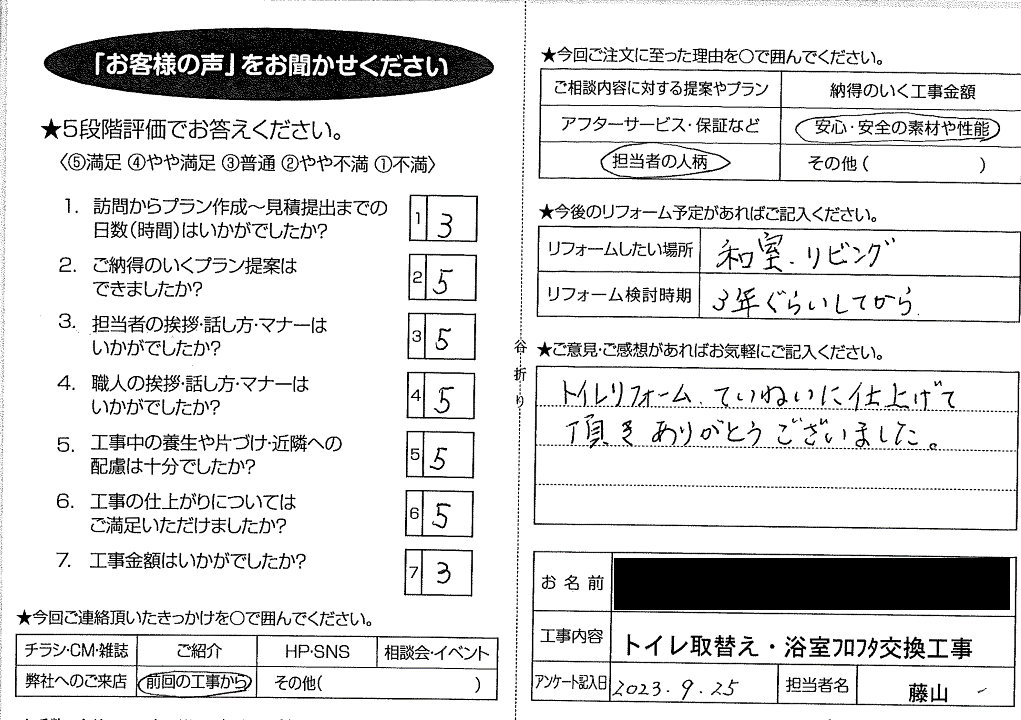 「お客様の声」をお聞かせください
★5段階評価でお答えください。
〈⑤満足 ④やや満足 ③普通 ②やや不満 ①不満〉
1. 訪問からプラン作成～見積提出までの
日数(時間)はいかがでしたか?
1 3
2. ご納得のいくプラン提案は
できましたか?
2 5
3. 担当者の挨拶・話し方・マナーは
いかがでしたか?
3 5
4. 職人の挨拶・話し方・マナーは
いかがでしたか?
4 5
5. 工事中の養生や片づけ・近隣への
配慮は十分でしたか?
5 5
6. 工事の仕上がりについては
ご満足いただけましたか?
6 5
7. 工事金額はいかがでしたか?
7 3
★今回ご連絡頂いたきっかけを○で囲んでください。
チラシ・CM・雑誌 ご紹介 HP・SNS 相談会・イベント
弊社へのご来店 前回の工事から その他( )
谷折り
★今回ご注文に至った理由を○で囲んでください。
ご相談内容に対する提案やプラン 納得のいく工事金額
アフターサービス・保証など 安心・安全の素材や性能
担当者の人柄 その他( )
★今後のリフォーム予定があればご記入ください。
リフォームしたい場所 和室・リビング
リフォーム検討時期 3年ぐらいしてから
★ご意見・ご感想があればお気軽にご記入ください。
トイレリフォーム、ていねいに仕上げて
頂きありがとうございました。
お名前
工事内容 トイレ取替え・浴室フロフタ交換工事
アンケート記入日 2023.9.25 担当者名 藤山